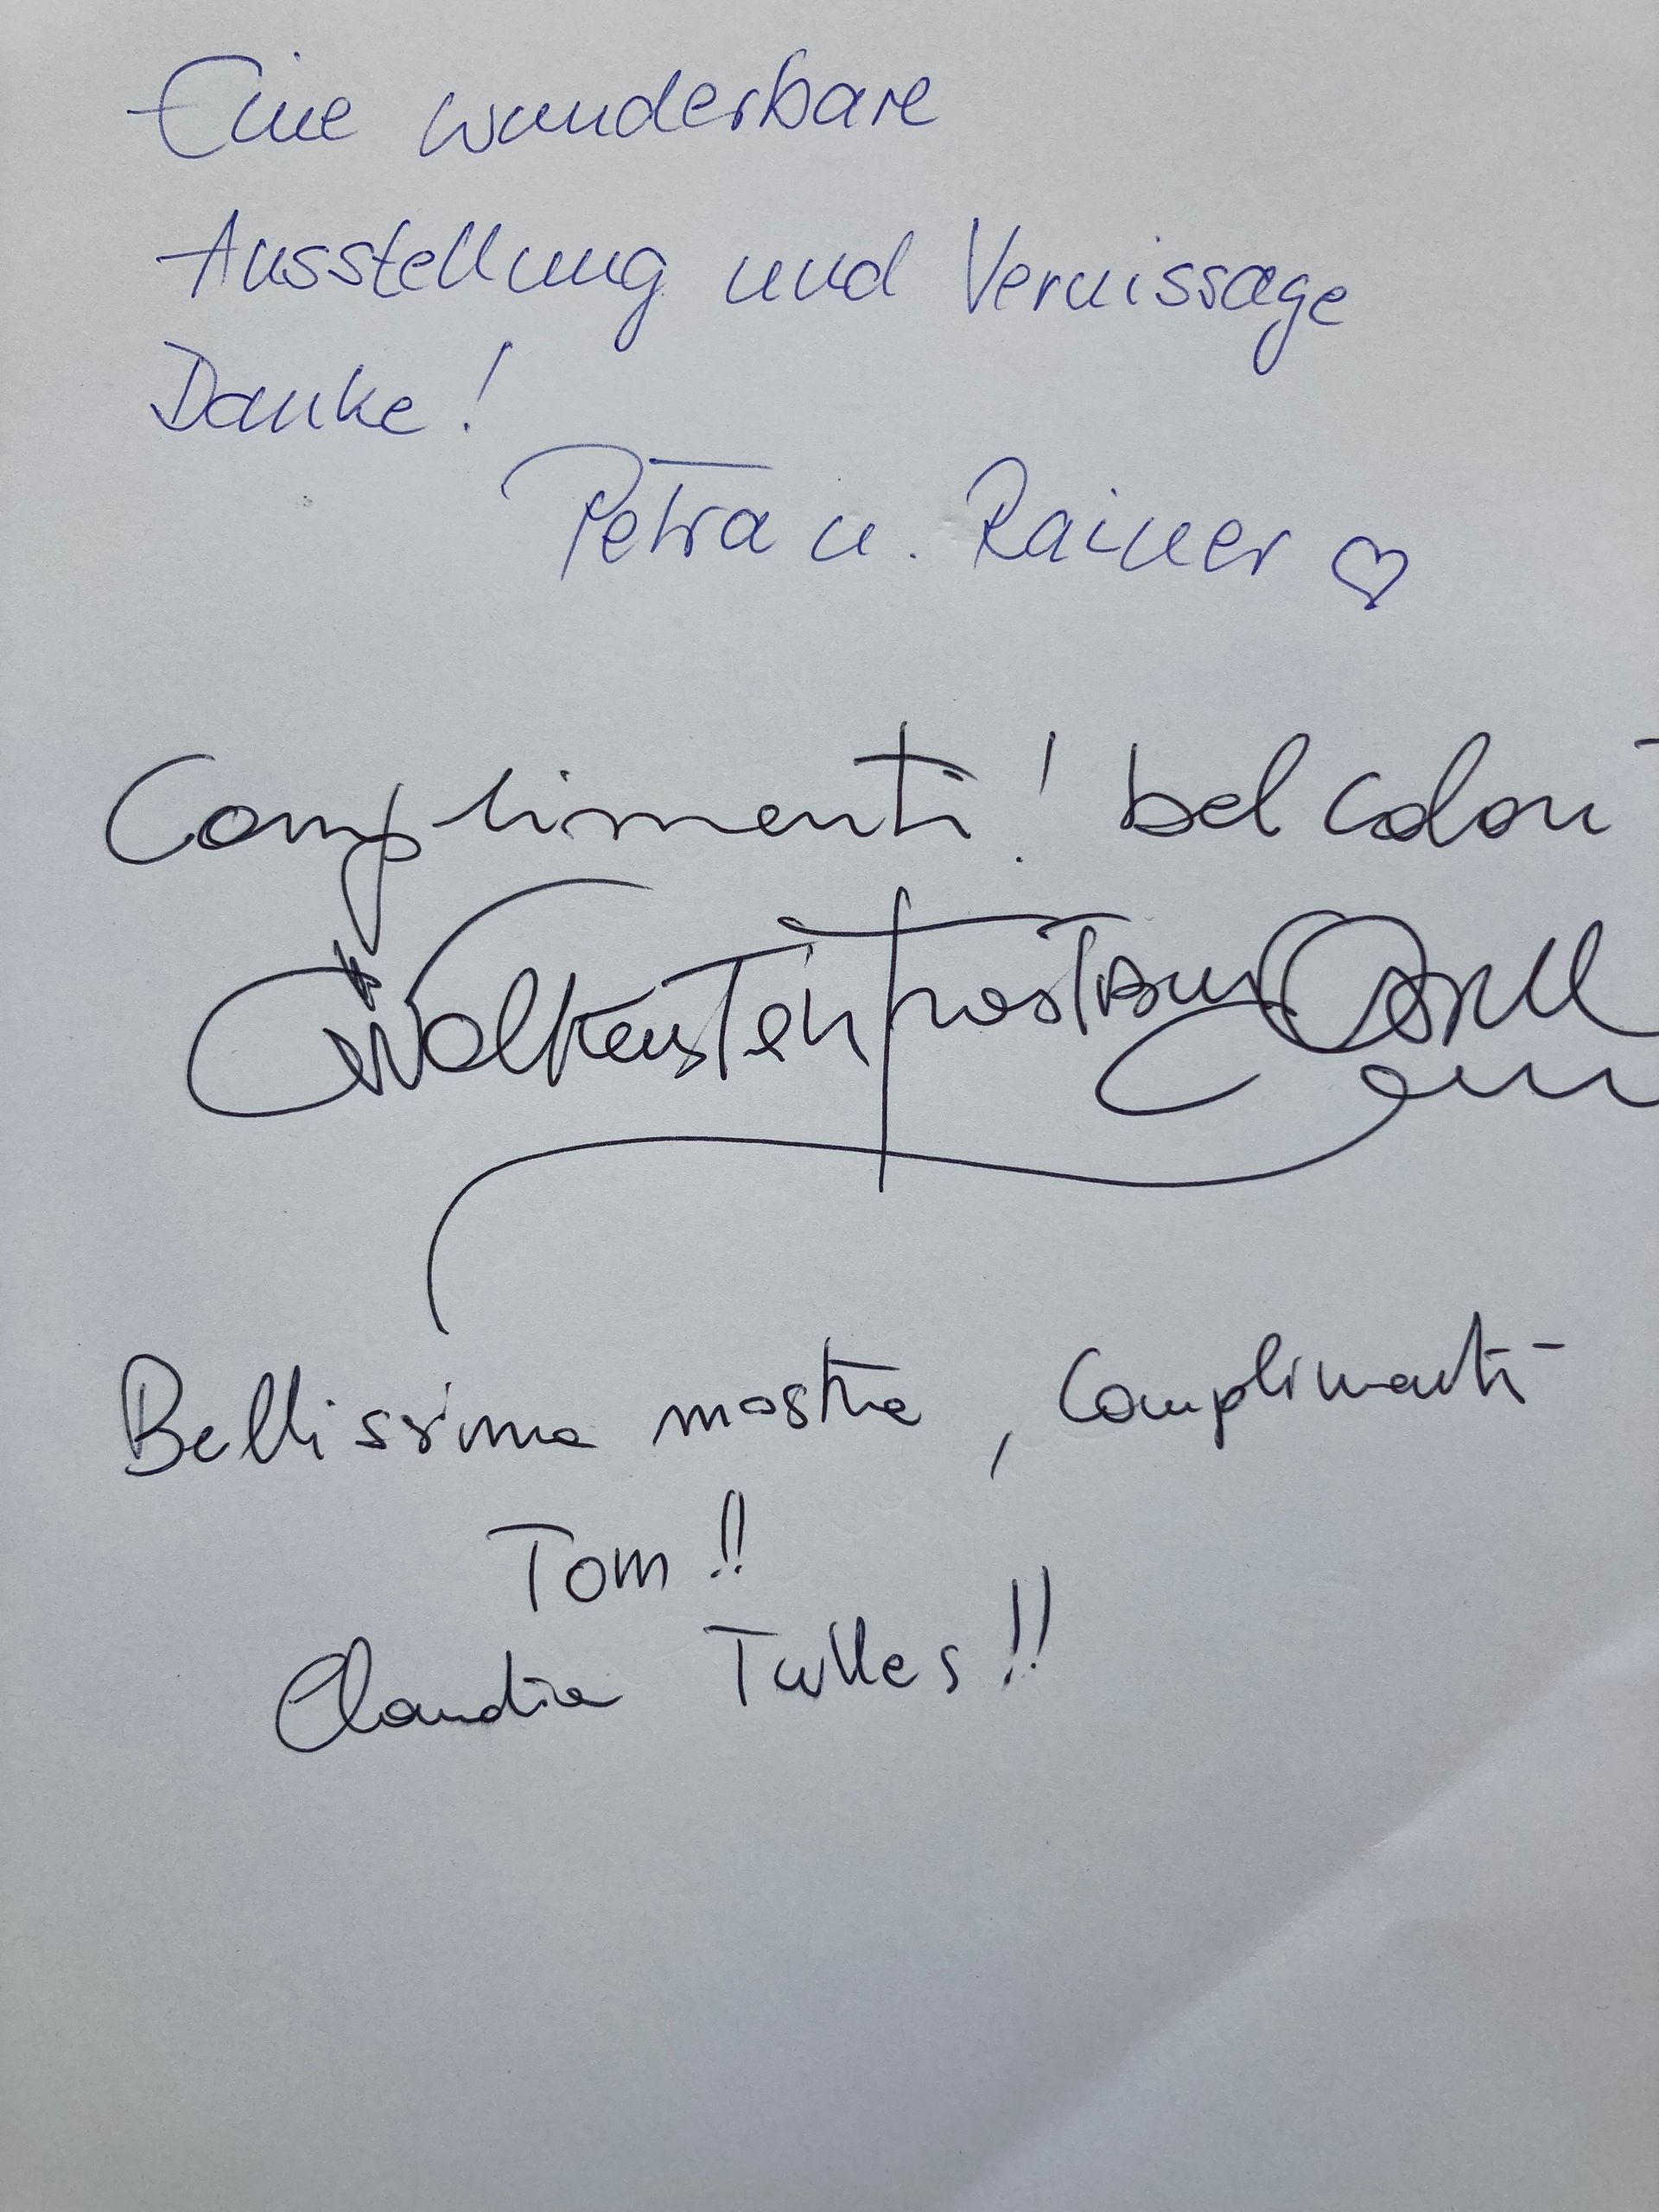 Eine wunderbare
Ausstellung und Vernissage
Danke!
Petra u. Rainer ♡
Complimenti! bel colori
Bellissima mostra, Complimenti
Tom!!
Claudia